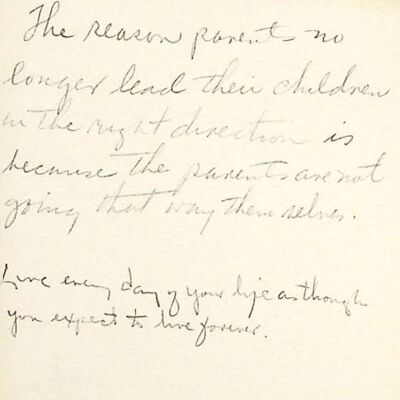 The reason parents no
longer lead their children
in the right direction is
because the parents are not
going that way themselves.
Live every day of your life as though
you expect to live forever.